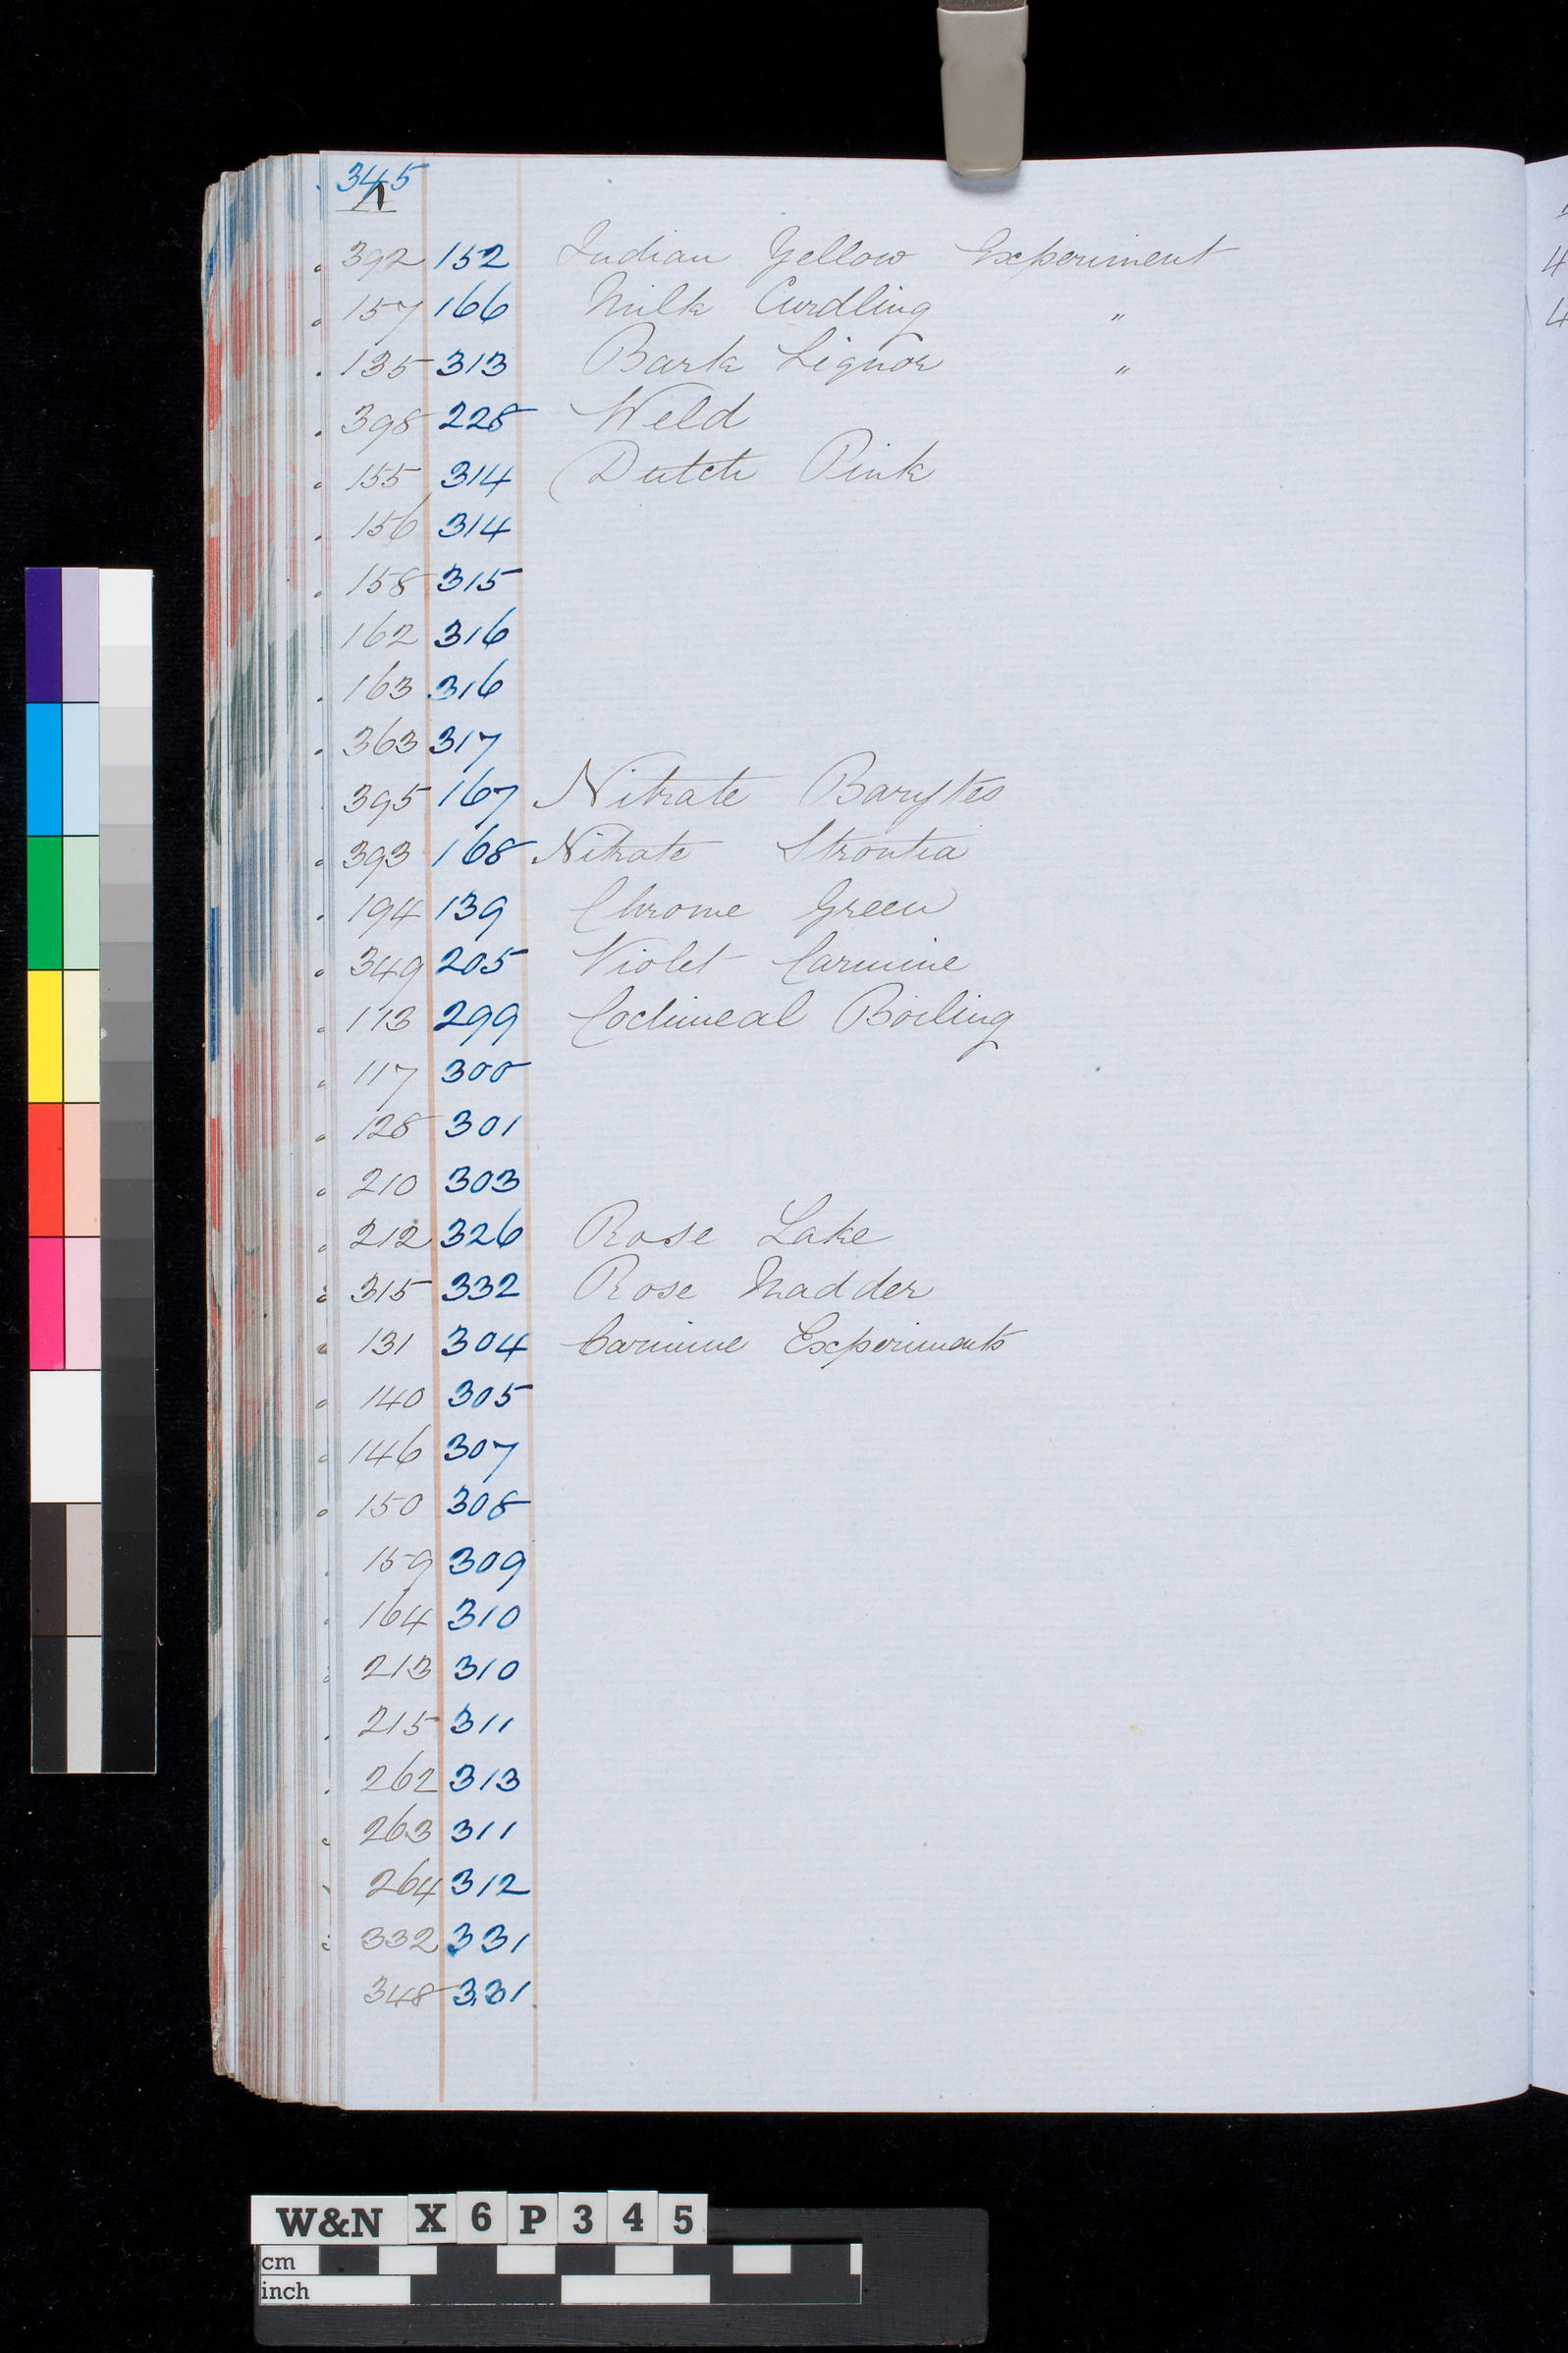 345
Λ
392 152 Indian Yellow Experiment
157 166 Milk Curdling "
135 313 Bark Liquor "
398 228 Weld
155 314 Dutch Pink
156 314
158 315
162 316
163 316
363 317
395 167 Nitrate Barytes
393 168 Nitrate Strontia
194 139 Chrome Green
349 205 Violet Carmine
113 299 Cochineal Boiling
117 300
128 301
210 303
212 326 Rose Lake
315 332 Rose Madder
131 304 Carmine Experiments
140 305
146 307
150 308
159 309
164 310
213 310
215 311
262 313
263 311
264 312
332 331
348 331
4
4
W&N X 6 P 3 4 5
cm
inch